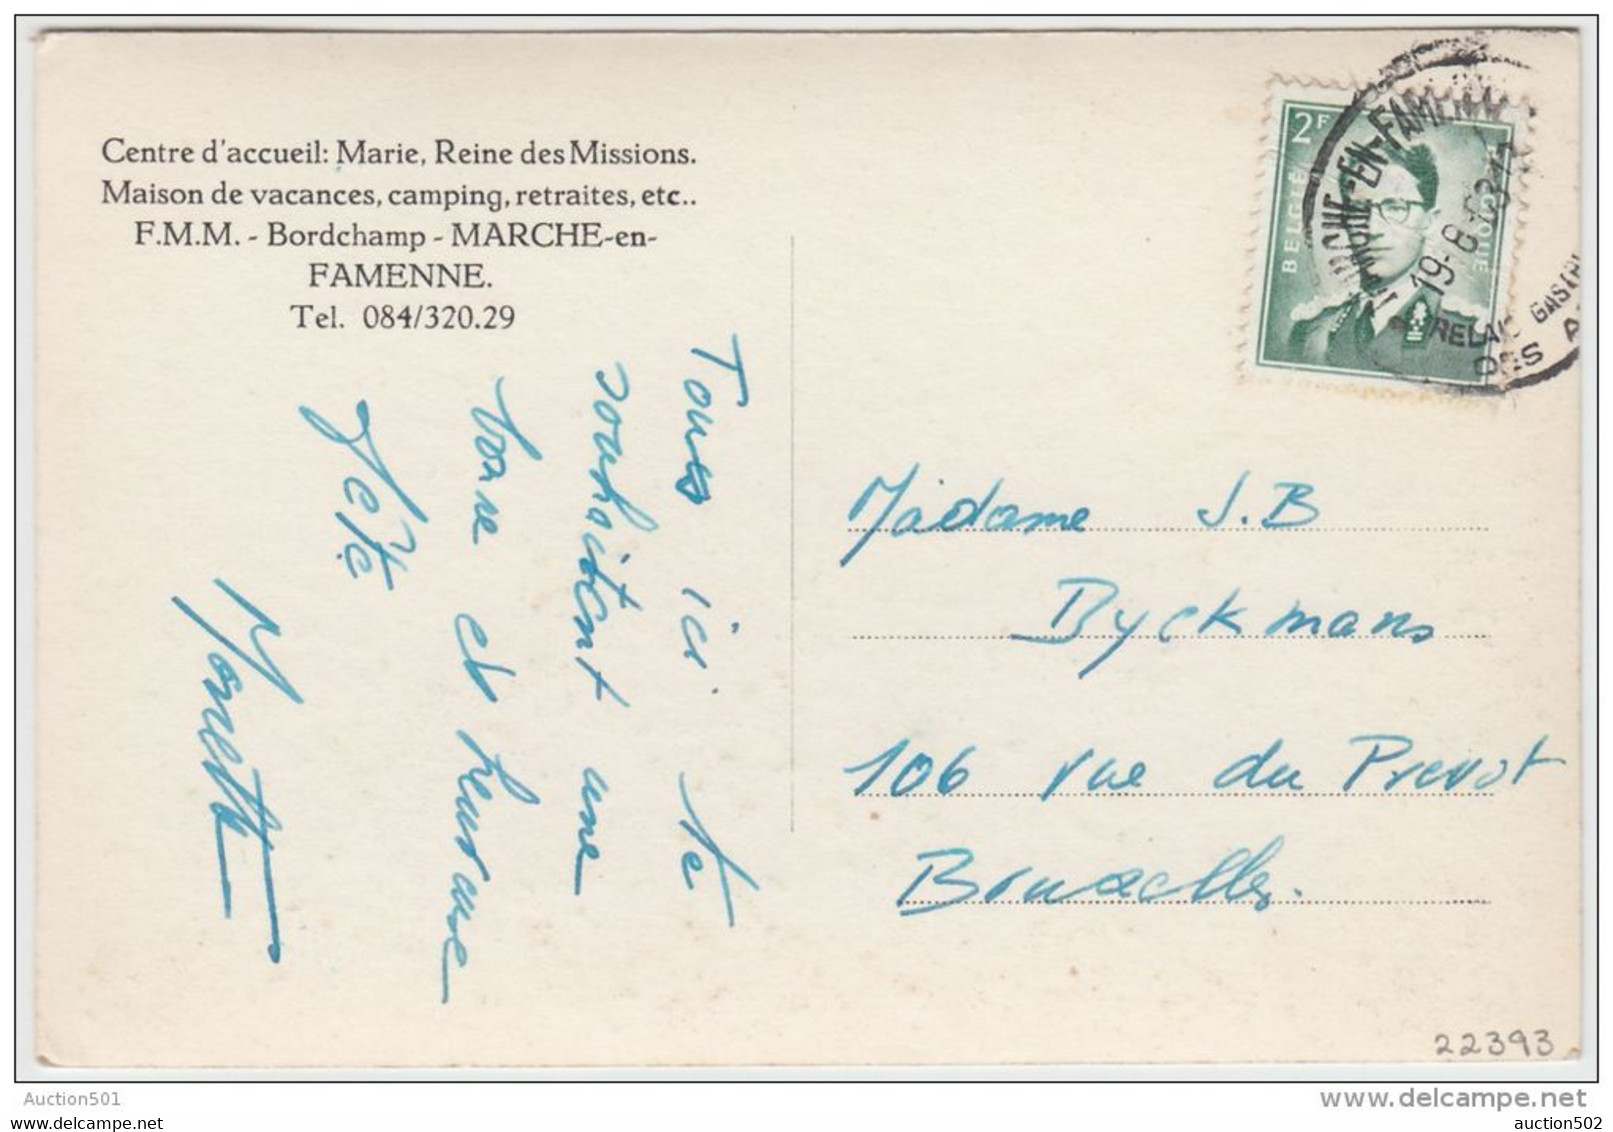 Centre d'accueil: Marie, Reine des Missions.
Maison de vacances, camping, retraites, etc..
F.M.M. - Bordchamp - MARCHE-en-
FAMENNE.
Tel. 084/320.29
Tous ici te
souhaitent une
bone et heureuse
fête
2F
BELGIË
BELGIQUE
EN-FAMENN
19-8-63
RELAIS GASTR
DES A
Madame J.B
Byckmans
106 rue du Prevot
Bruxelles.
22393
Auction501
www.delcampe.net
auction502